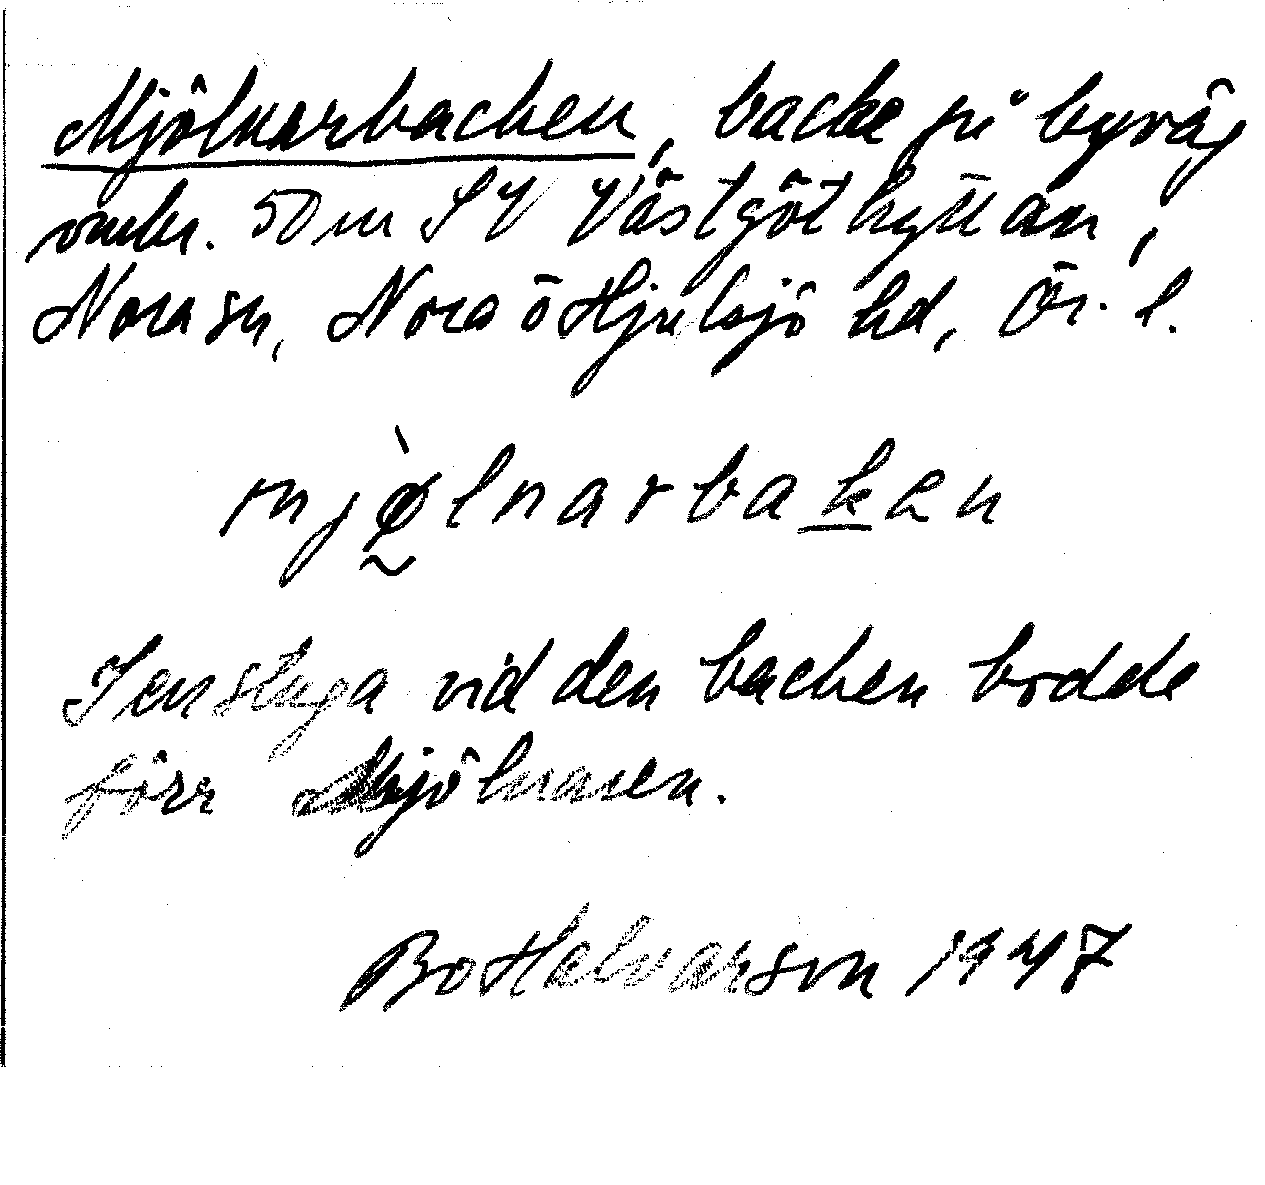 Mjölnarbacken, backe på byväg
omkr. 50 m SV Västgöthyttan,
Nora sn, Nora o Hjulsjö hd, Ör. l.
mjø̀lnarbaken
I en stuga vid den backen bodde
förr Mjölnaren.
Bo Halvarson 1947